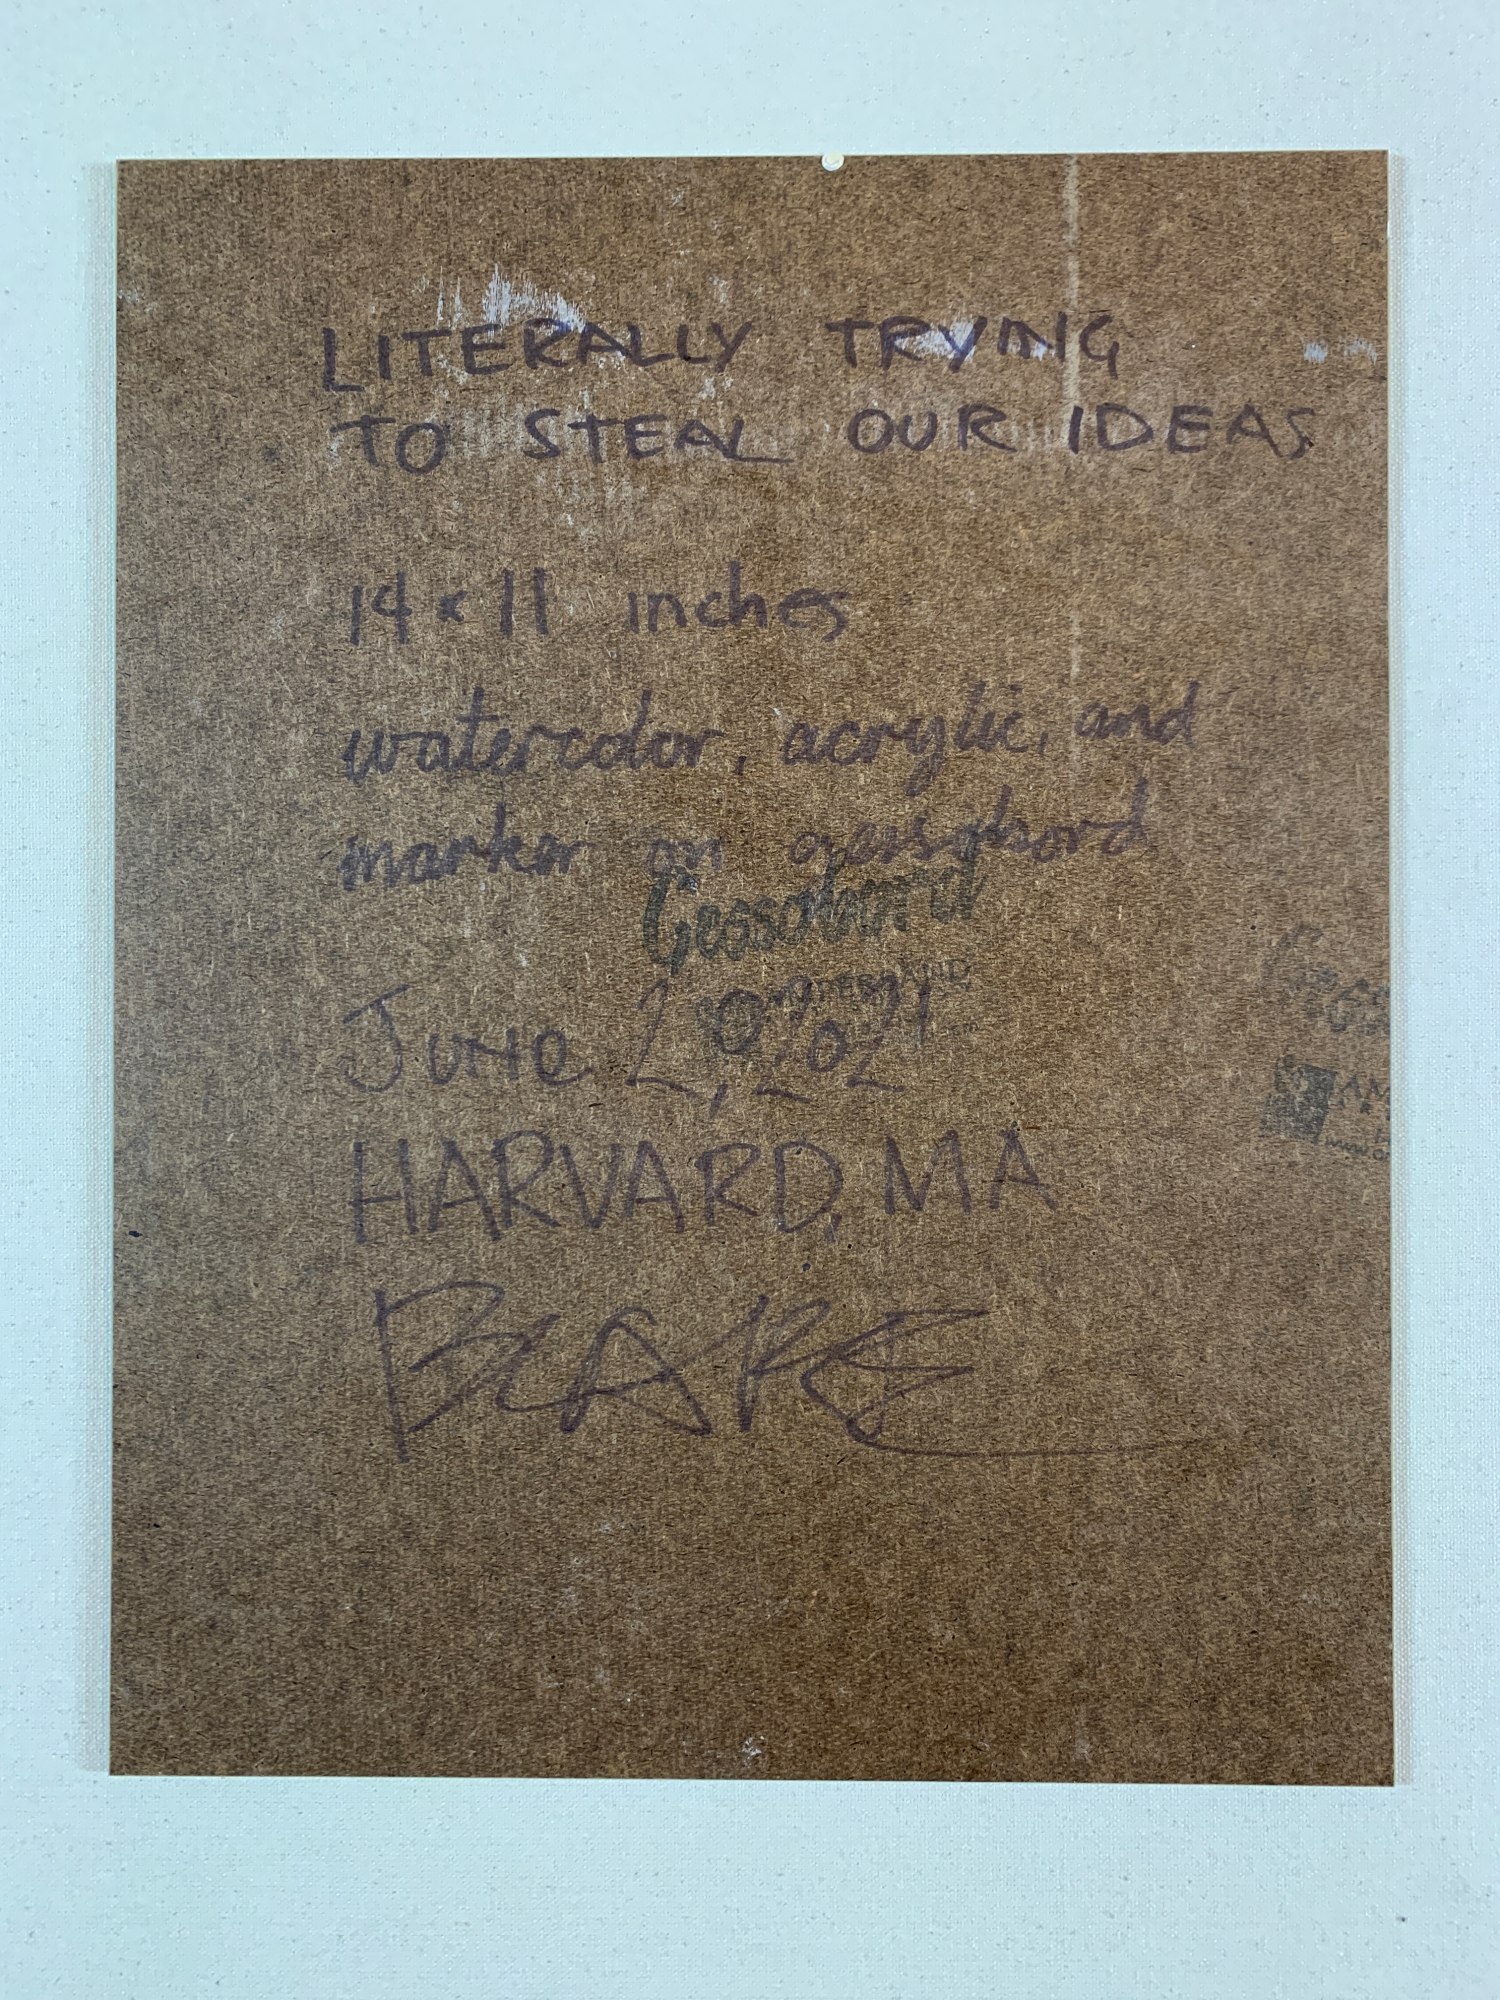 LITERALLY TRYING
TO STEAL OUR IDEAS
14 x 11 inches
watercolor, acrylic, and
marker on gessobord
Gessobord
June 20, 2021
HARVARD, MA
BLAKE